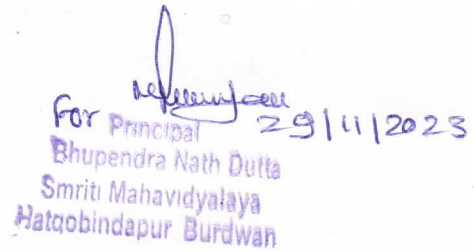 For Principal
29/11/2023
Bhupendra Nath Dutta
Smriti Mahavidyalaya
Hatgobindapur Burdwan